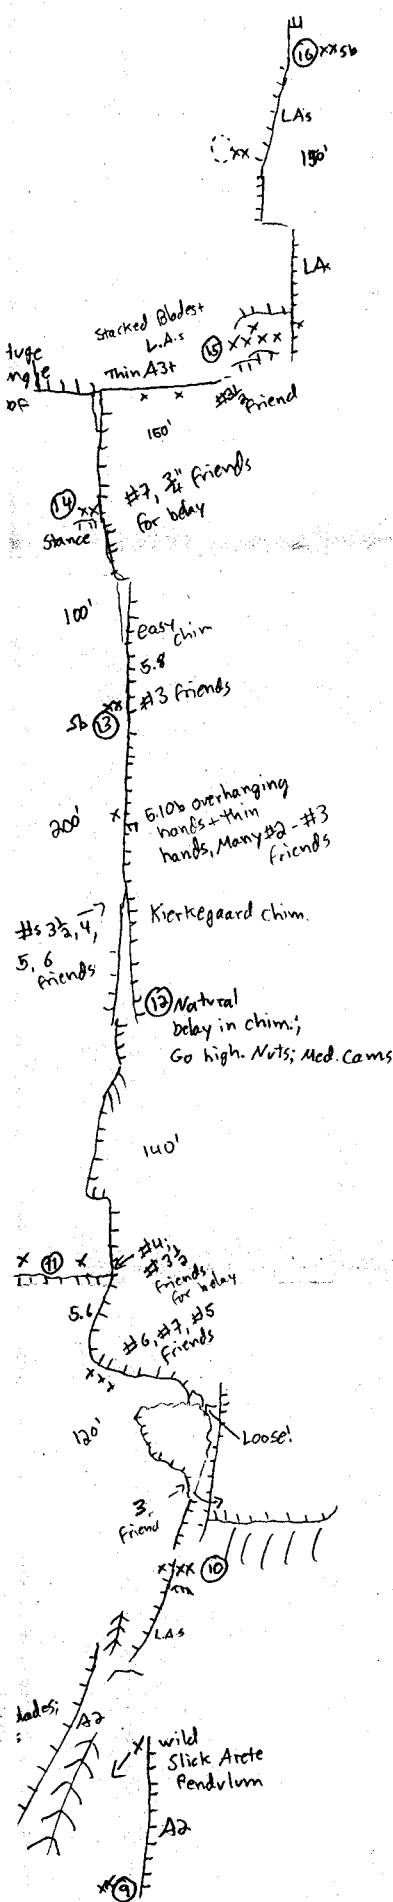 16 xx 5b
LA's
xx
150'
LA.
Stacked Blades +
L.A.s
Thin A3+
15 x x x x
x
x x
#3½ Friend
150'
of
14 xx
Stance
#7, ¾" friends
for belay
100'
easy chim
5.8
xx
#3 friends
5b 13
200'
x
5.10b overhanging
hands + thin
hands, Many #2 - #3
friends
Kierkegaard chim.
#s 3½, 4,
5, 6
friends
12 Natural
belay in chim.;
Go high. Nuts; Med. Cams
140'
x 11 x
#4;
#3½
friends
for belay
5.6
#6, #7, #5
friends
xxx
120'
Loose!
3.
friend
xxxx 10
LAs
A2
x wild
Slick Arete
Pendulum
A2
9